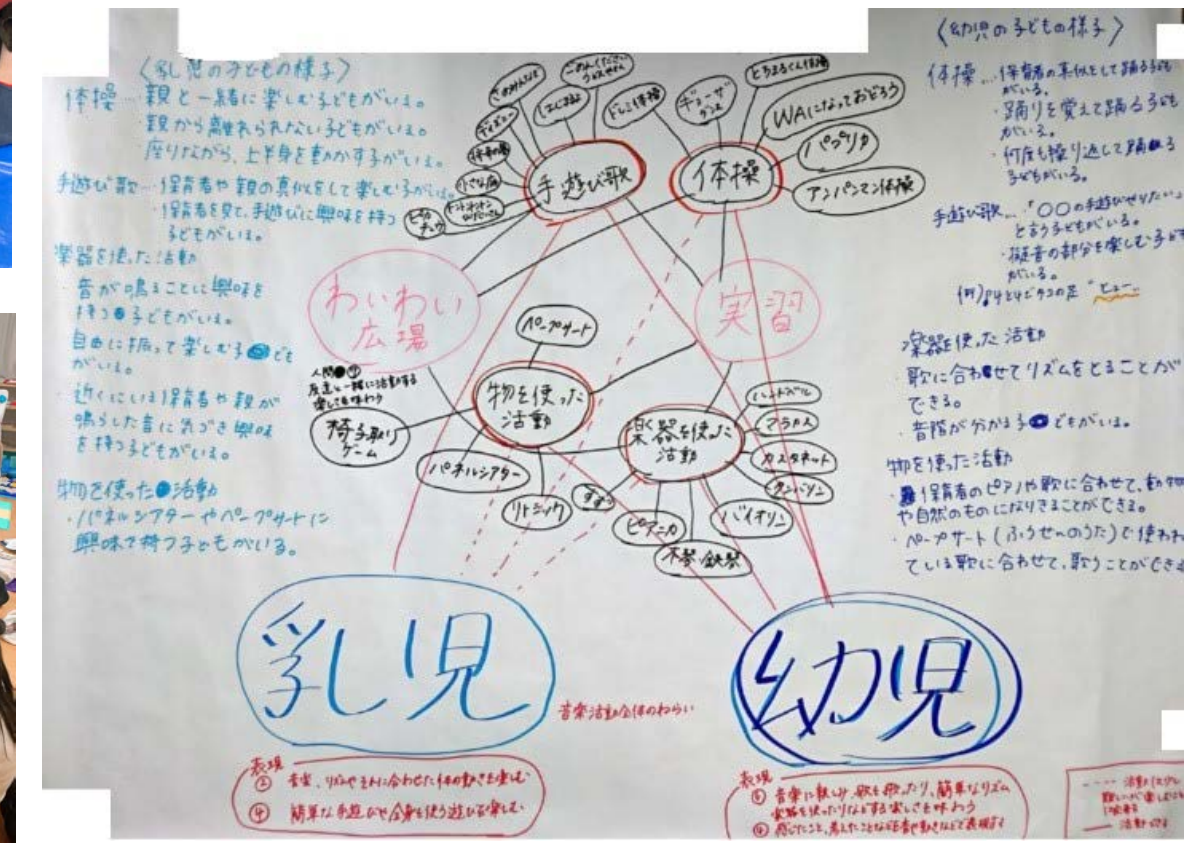 〈乳児の子どもの様子〉
体操…親と一緒に楽しむ子どもがいる。
・親から離れられない子どもがいる。
・座りながら、上半身を動かす子がいる。
手遊び歌…・保育者や親の真似をして楽しむ子がいる。
・保育者を見て、手遊びに興味を持つ
子どもがいる。
楽器を使った活動
・音が鳴ることに興味を
持つ子どもがいる。
自由に振って楽しむ子ども
がいる。
・近くにいる保育者や親が
鳴らした音に気づき興味
を持つ子どもがいる。
物を使った活動
・パネルシアターやペープサートに
興味で持つ子どもがいる。
手遊び歌
小さな庭
体操
どしこ体操
WAになっておどろう
パプリカ
アンパンマン体操
わいわい
広場
実習
ペープサート
物を使った
活動
人間
友達と一緒に活動する
楽しさを味わう
椅子取り
ゲーム
パネルシアター
リトミック
楽器を使った
活動
ハンドベル
マラカス
カスタネット
タンバリン
バイオリン
木琴・鉄琴
ピアニカ
すず
乳児
幼児
音楽活動全体のねらい
表現
② 音楽、リズムやそれに合わせた体の動きを楽しむ
④ 簡単な手遊びや全身を使う遊びを楽しむ
表現
音楽に親しみ、歌を歌ったり、簡単なリズム
楽器を使ったりなどする楽しさを味わう
感じたこと、考えたことなどを音や動きなどで表現する
〈幼児の子どもの様子〉
体操…・保育者の真似をして踊る子ども
がいる。
・踊りを覚えて踊る子ども
がいる。
・何度も繰り返して踊る
子どもがいる。
手遊び歌…・「〇〇の手遊びやりたい」
と言う子どもがいる。
・擬音の部分を楽しむ子ども
がいる。
楽器を使った活動
・歌に合わせてリズムをとることが
できる。
・音階が分かる子どもがいる。
物を使った活動
・保育者のピアノや歌に合わせて、動物
や自然のものになりきることができる。
・ペープサート(ふうせんのうた)で使われ
ている歌に合わせて、歌うことができる